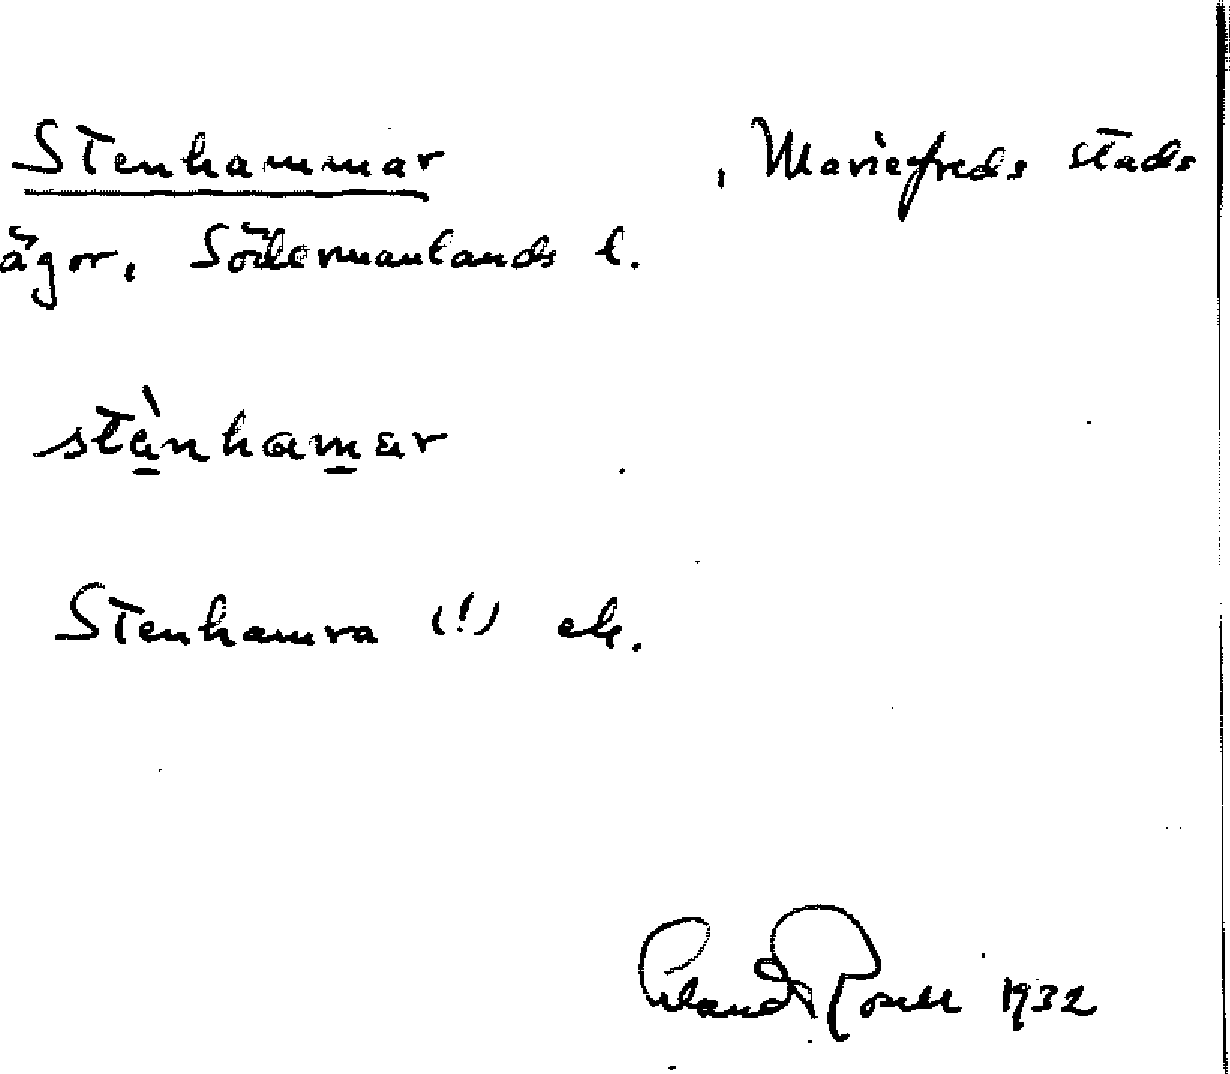 Stenhammar , Mariefreds stads
ägor, Södermanlands l.
stànhamar
Stenhamra (!) ek.
Erland Rosell 1932